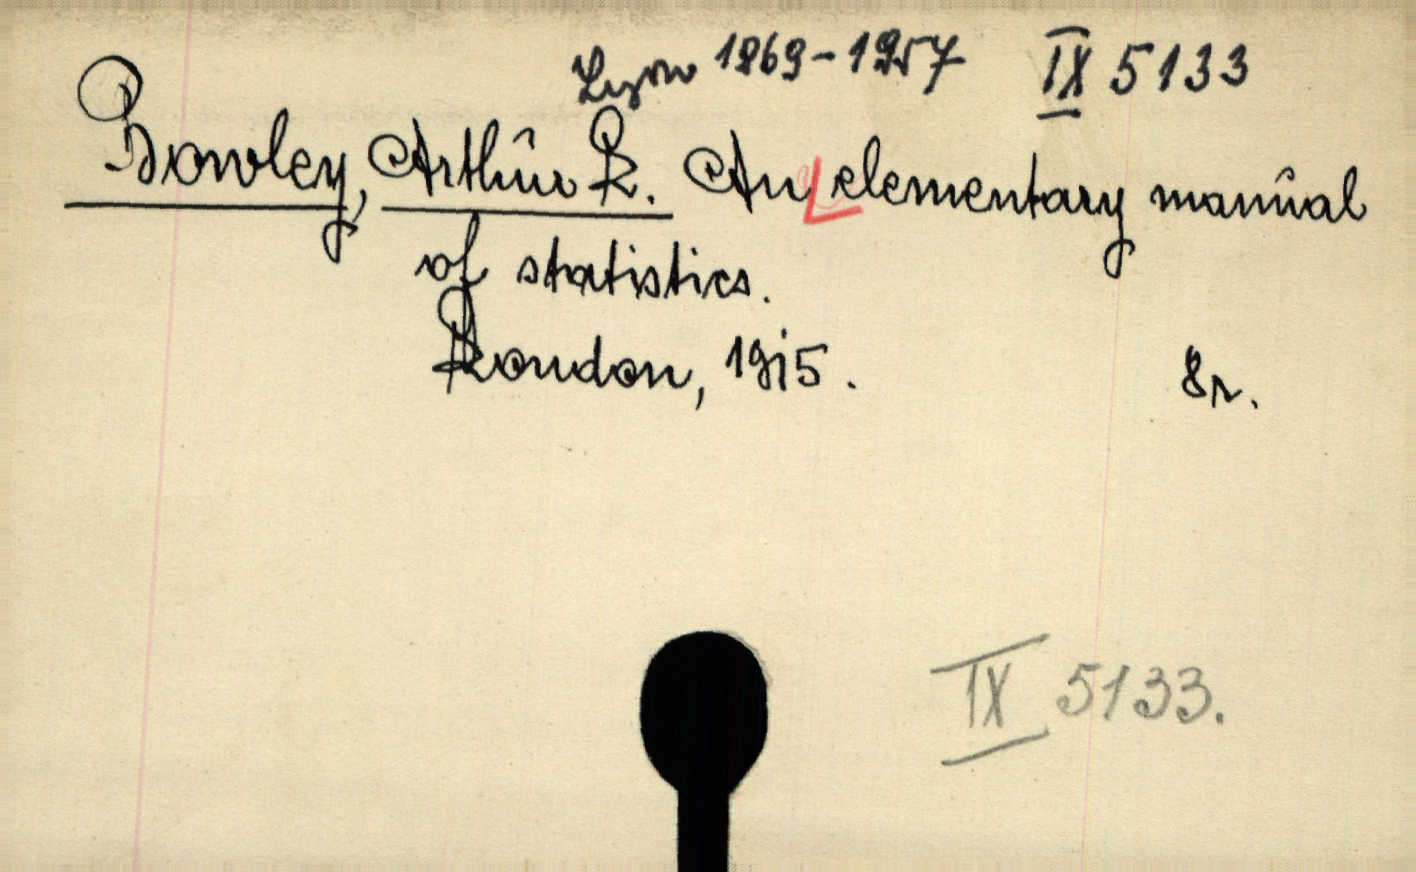 Lyon 1869-1957 IX 5133
Bowley, Arthur L. An elementary manual
of statistics.
London, 1915. 8r.
IX 5133.